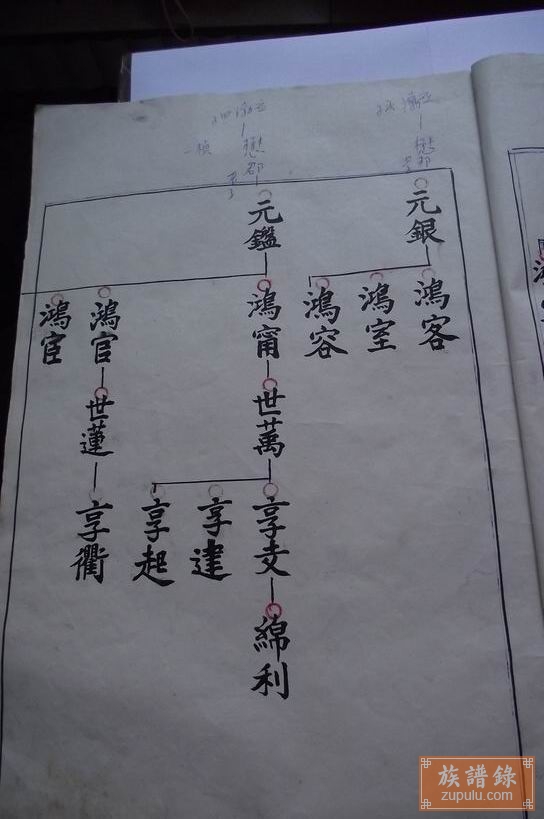 元銀
鴻客
鴻室
鴻容
元鑑
鴻甯
世萬
享支
享建
享起
綿利
鴻官
世蓮
享衢
鴻宦
族譜錄
zupulu.com